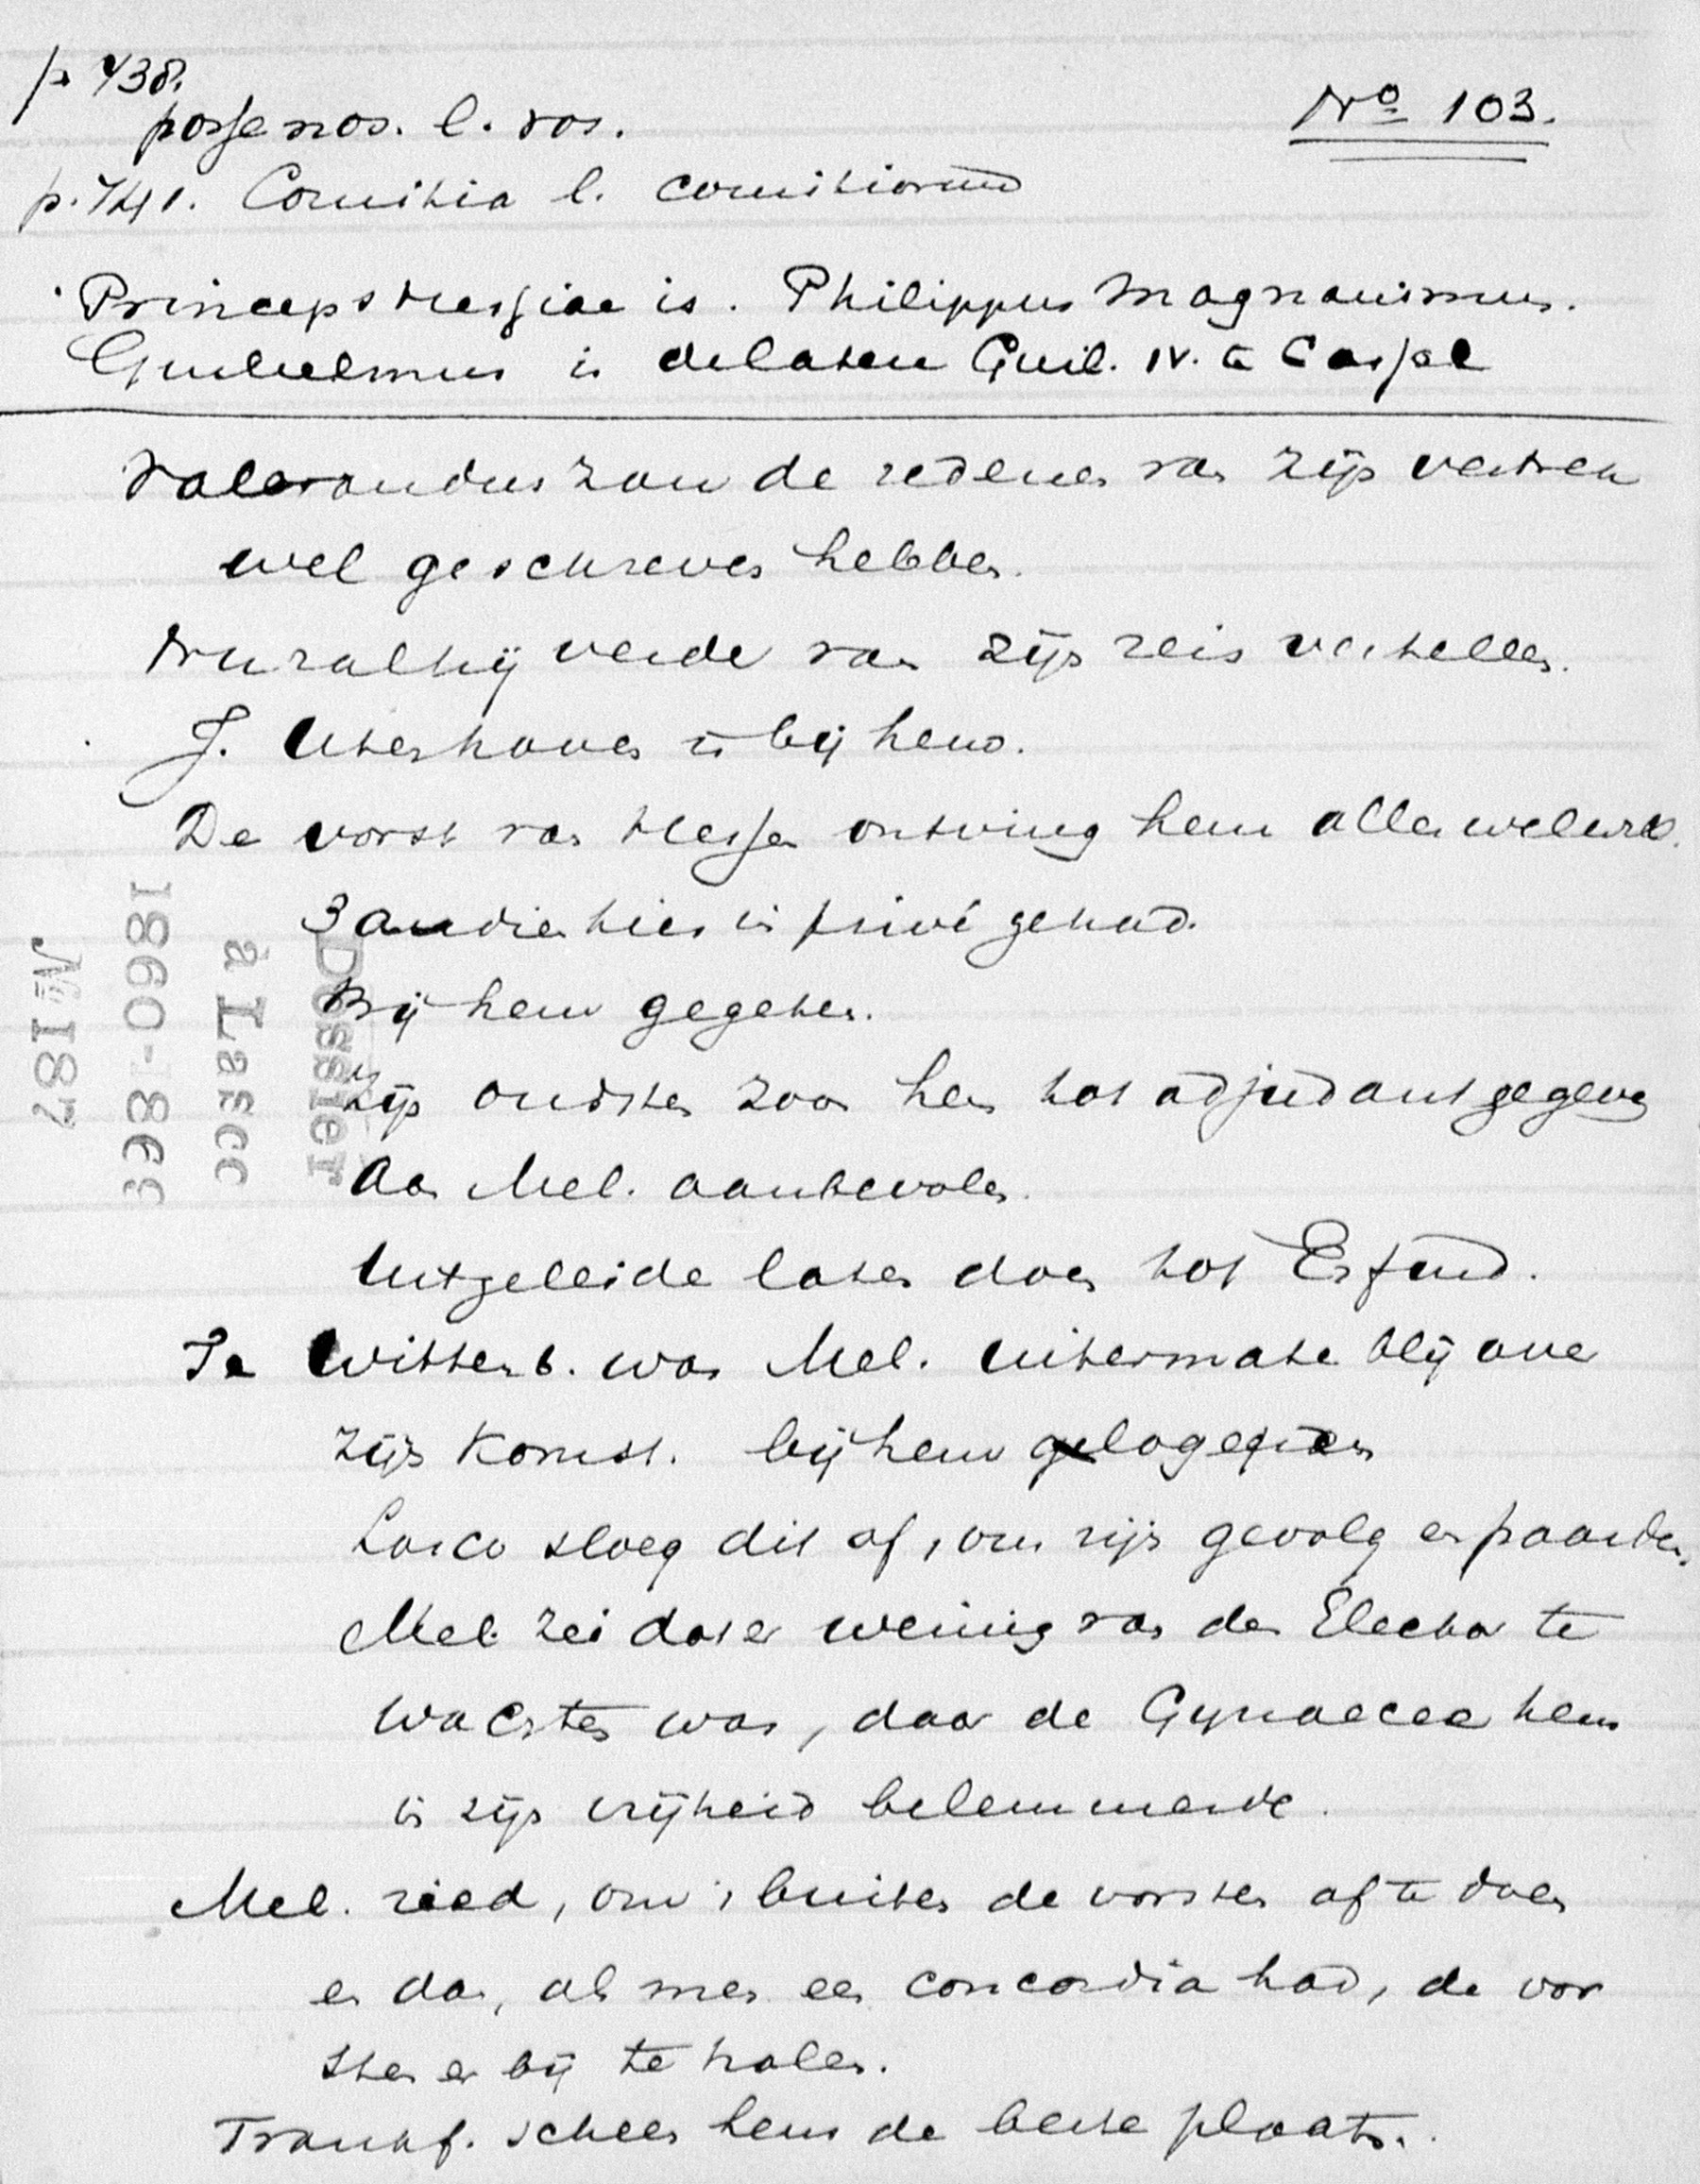 p. 738.
posse nos. l. vos.
No 103.
p. 741. Comitia l. comitiorum
Princeps Hessiae is. Philippus Magnanimus.
Guilielmus is de latere Guil. IV. te Cassel
Valerandus zou de redenen van zijn vertrek
wel geschreven hebben.
Nu zal hij verder van zijn reis vertellen.
J. Utenhoven is bij hem.
De vorst van Hessen ontving hem aller welwill.
3 audientien in privé gehad.
Bij hem gegeten.
Zijn oudsten zoon hem tot adjudant gegeven
Aan Mel. aanbevolen.
Uitgeleide laten doen tot Erfurd.
Te Wittenb. was Mel. uitermate blij over
zijn komst. bij hem logeeren
Lasco sloeg dit af, om zijn gevolg en paarden.
Mel. zei dat er weinig van den Elector te
wachten was, daar de Gynaecea hem
in zijn vrijheid belemmerde.
Mel. ried, om 't buiten de vorsten af te doen
en dan, als men een concordia had, de vor
sten er bij te halen.
Frankf. scheen hem de beste plaats.
Dossier
à Lasco
1860-1866
No 187